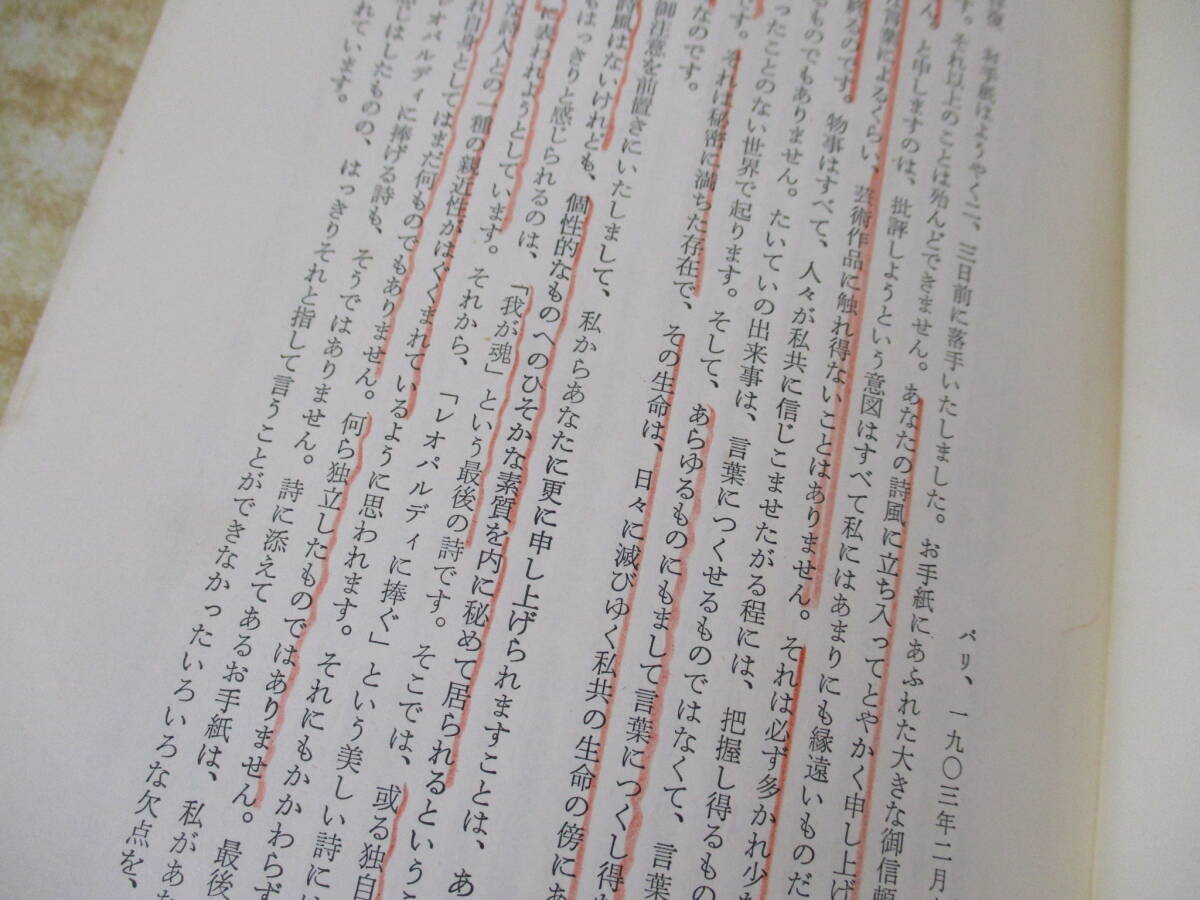 パリ、一九〇三年二月
復 お手紙はようやく二、三日前に落手いたしました。お手紙にあふれた大きな御信頼
す。それ以上のことは殆んどできません。あなたの詩風に立ち入ってとやかく申し上げ
ん。と申しますのは、批評しようという意図はすべて私にはあまりにも縁遠いものだ
言葉によるくらい、芸術作品に触れ得ないことはありません。それは必ず多かれ少な
終るのです。物事はすべて、人々が私共に信じこませたがる程には、把握し得るもの
るものでもありません。たいていの出来事は、言葉につくせるものではなくて、言葉
ったことのない世界で起ります。そして、あらゆるものにもまして言葉につくし得
です。それは秘密に満ちた存在で、その生命は、日々に滅びゆく私共の生命の傍にあ
なのです。
御注意を前置きにいたしまして、私からあなたに更に申し上げられますことは、あ
詩風はないけれども、個性的なものへのひそかな素質を内に秘めて居られるというこ
もはっきりと感じられるのは、「我が魂」という最後の詩です。そこでは、或る独自
に表われようとしています。それから、「レオパルディに捧ぐ」という美しい詩に
な詩人との一種の親近性がはぐくまれているように思われます。それにもかかわらず
れ自身としてはまだ何ものでもありません。何ら独立したものではありません。最後
レオパルディに捧げる詩も、そうではありません。詩に添えてあるお手紙は、私があな
感じはしたものの、はっきりそれと指して言うことができなかったいろいろな欠点を、
れています。